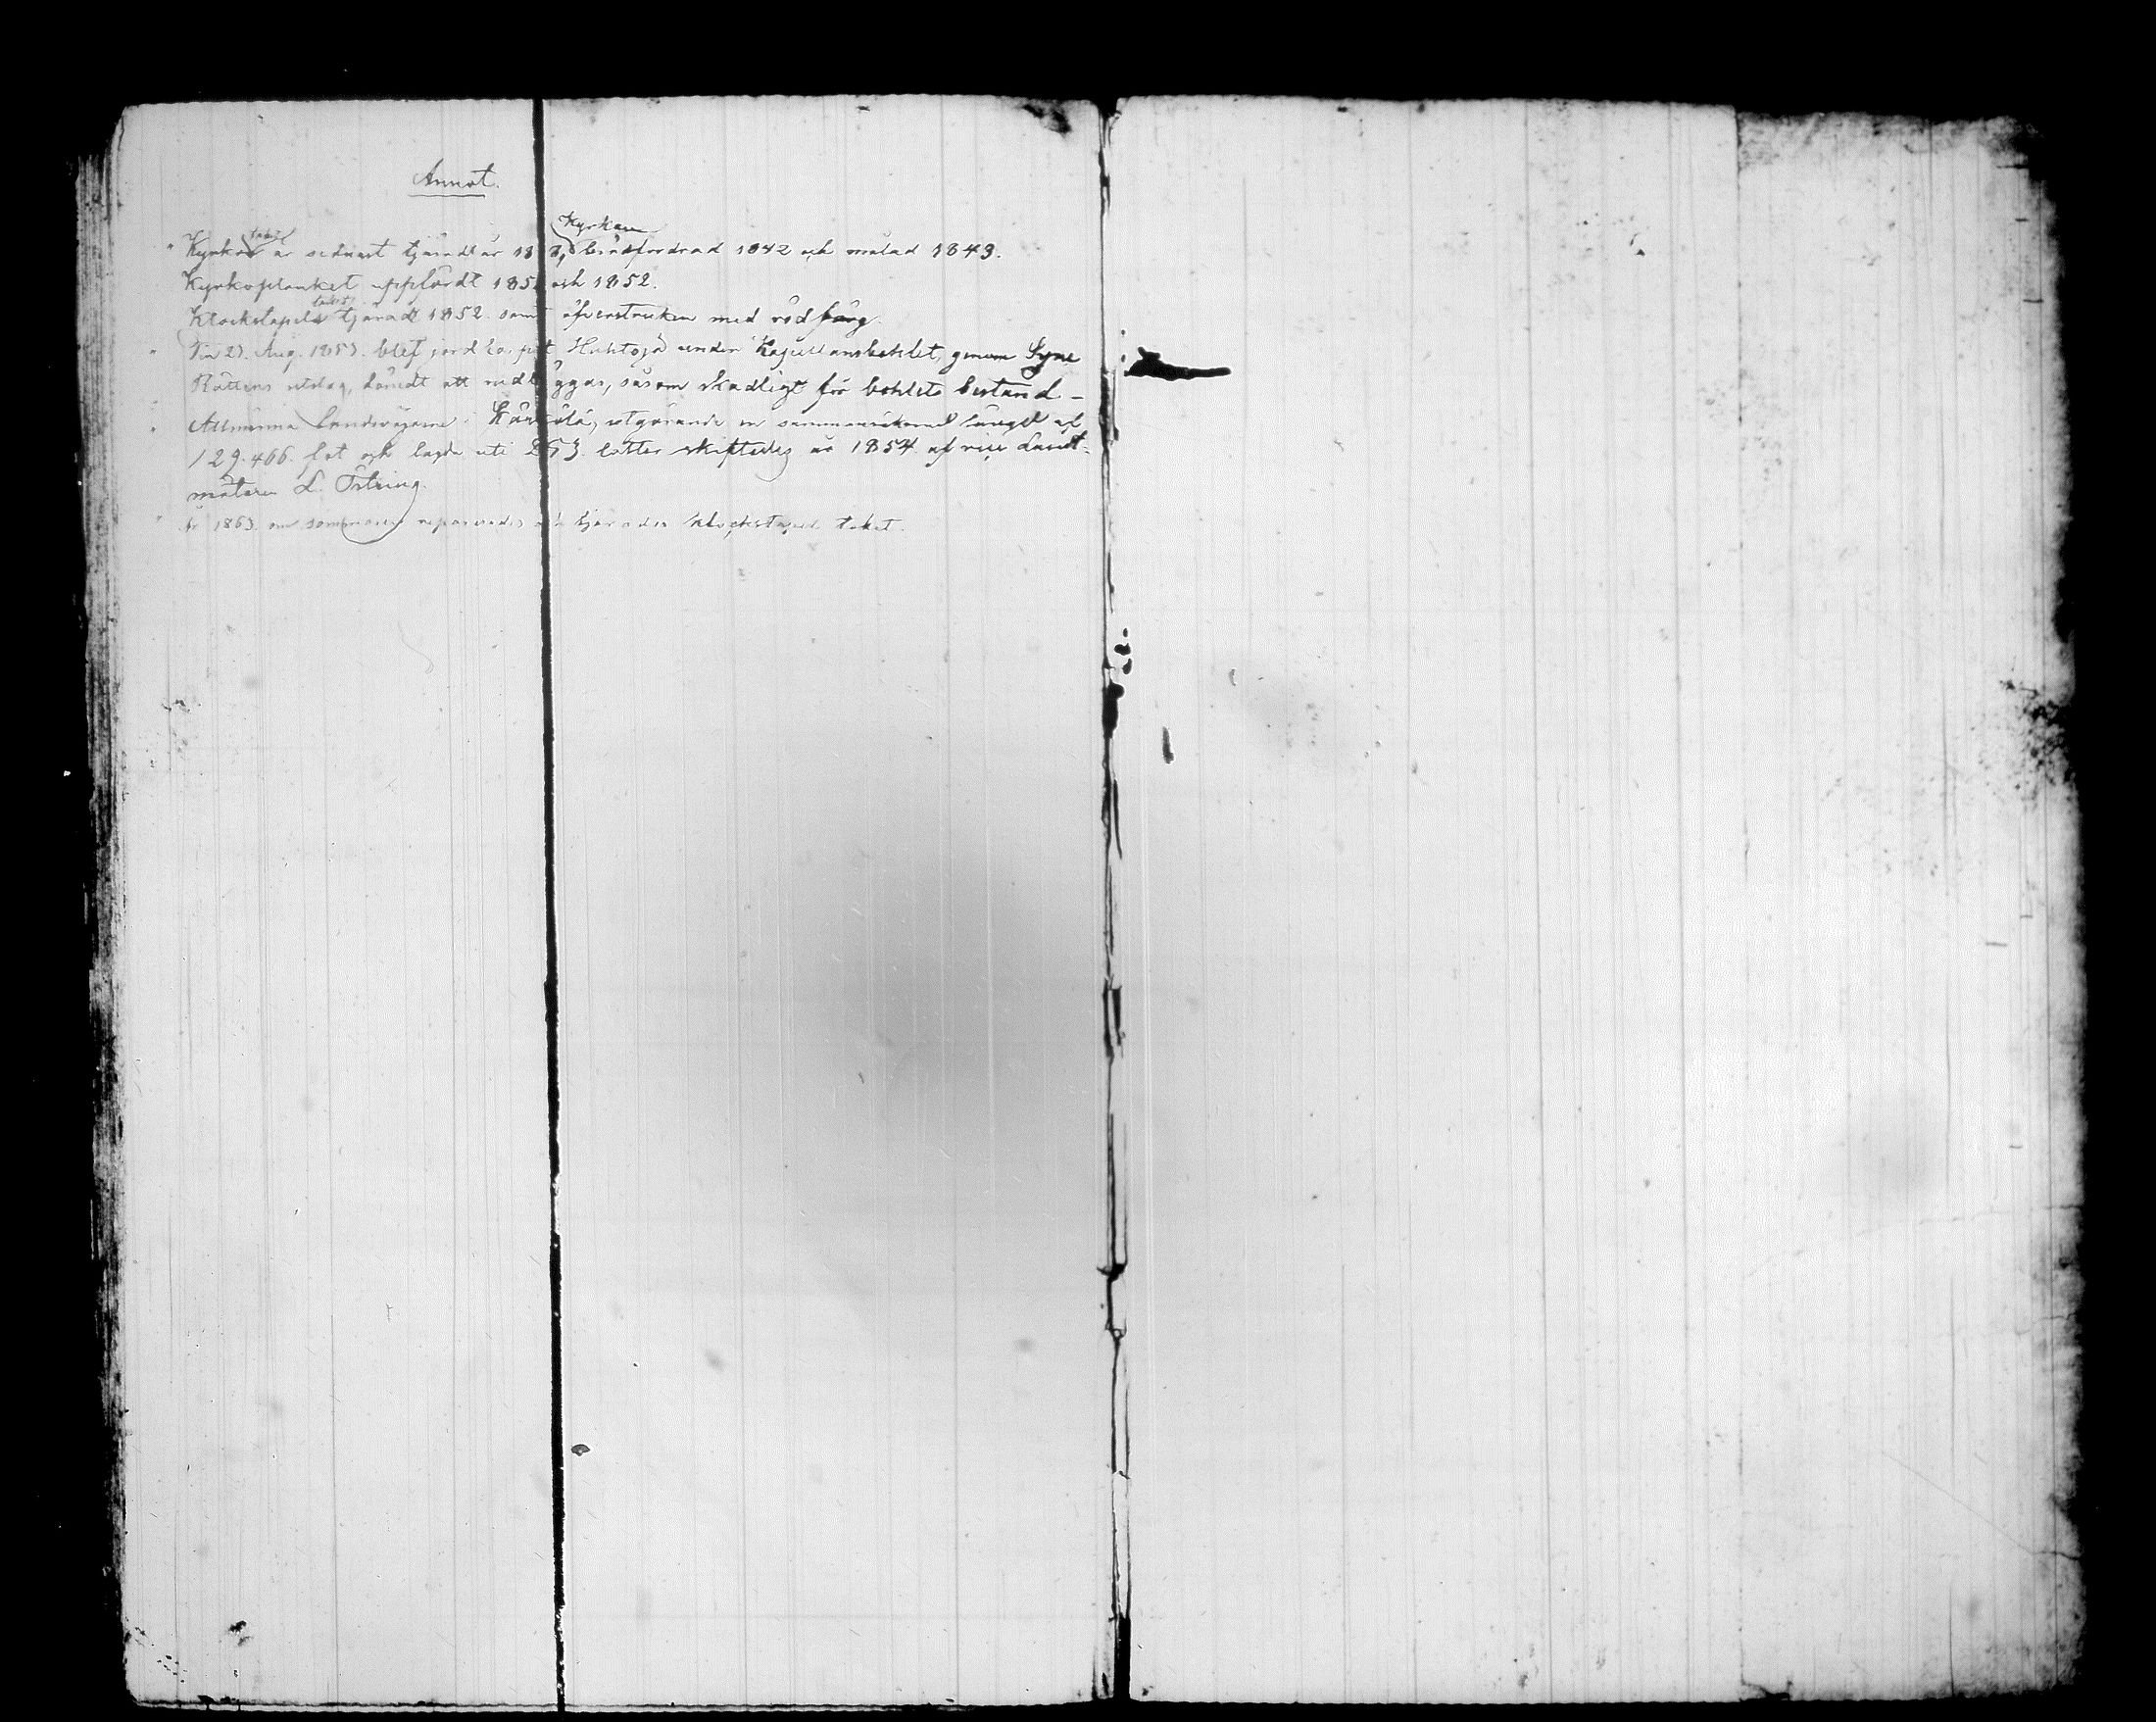 Annot.
Kyrkan
taket
" Kyrko är sednast tjäradt år 18 brädfordrad 1842 och målad 1843.
Kyrkoplanket uppfördt 185 och 1852.
taket
Klockstapels tjäradt 1852 samt öfverstruken med röd färg.
" Den 23. Aug. 1853. blef jordtorpet Huhtoja under Kapellansbohlet, genom Syne
Rättens utslag, dömdt att nedläggas, såsom skadligt för bohlets bestånd –
" Allmänna Landsvägarne i Kärkölä, utgörande en sammanräknad längd af
129.466. fot och lagda uti 253. lotter skiftades år 1854 af vice Landt-
mätaren L. Östring.
" År 1863. om sommaren reparerades och tjärades Klockstapel taket.